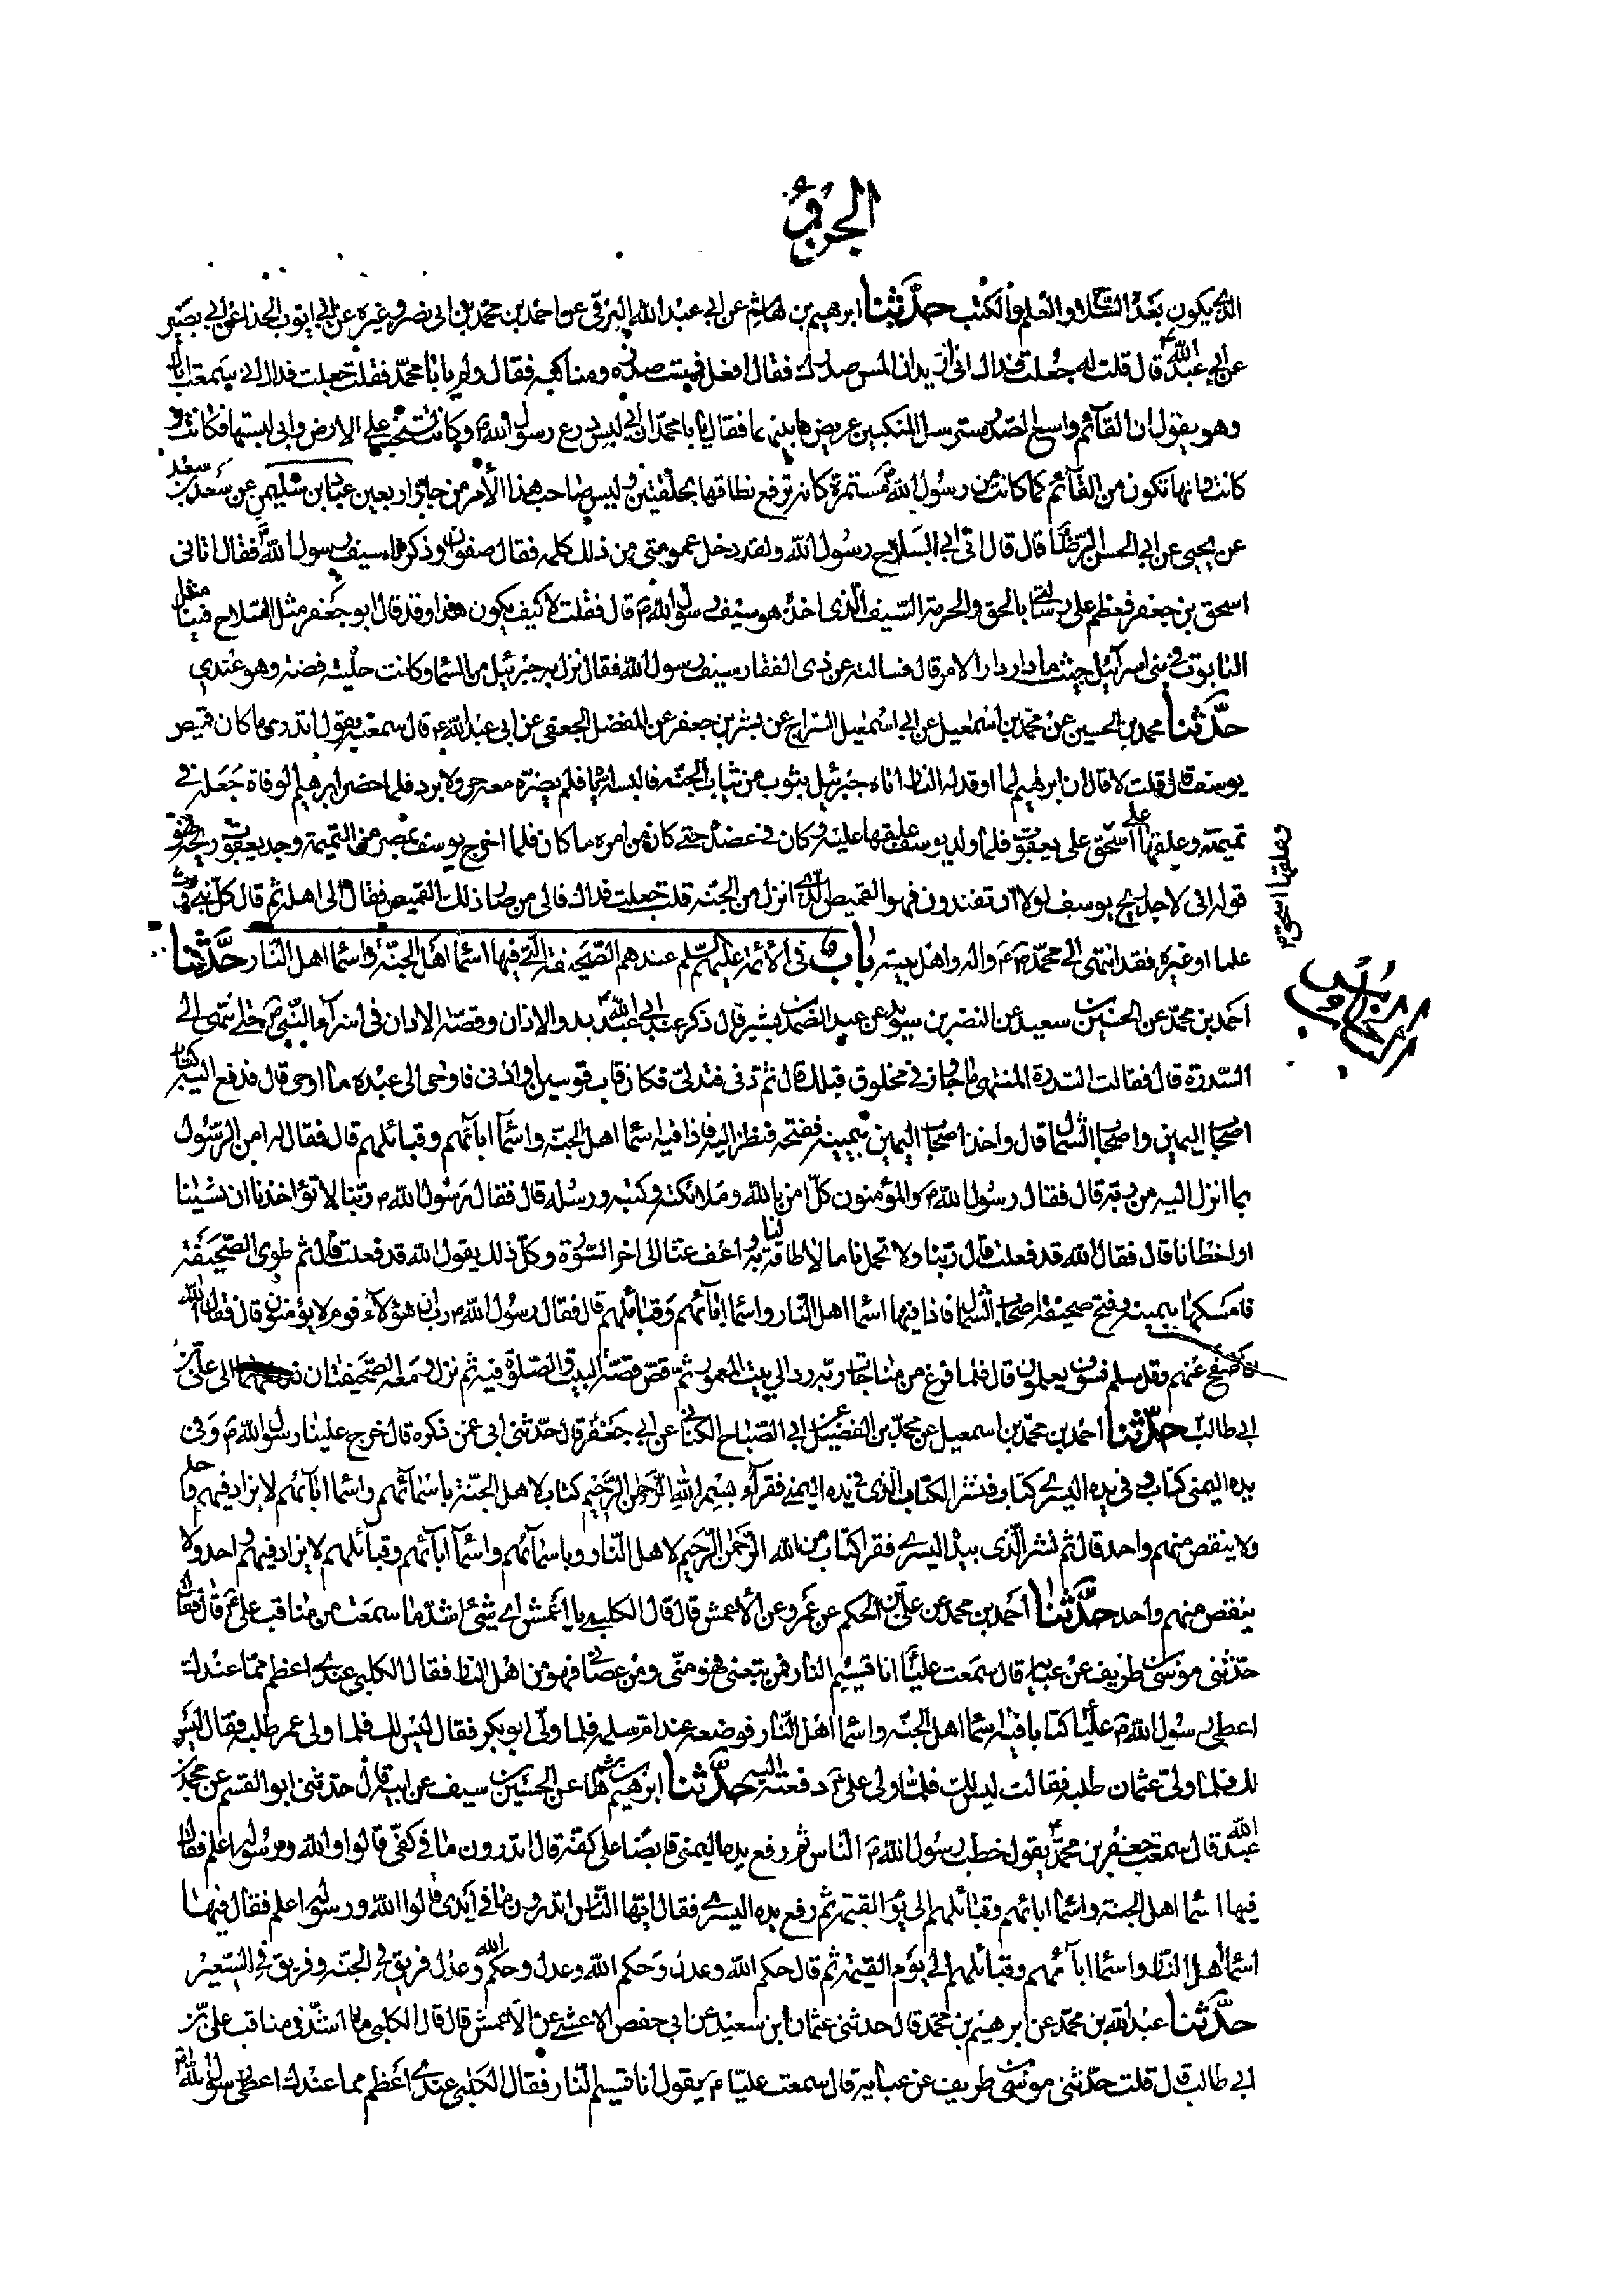 الجزء
الذي يكون بعد السلاح والعلم والكتب حدثنا ابرهيم بن هاشم عن ابي عبد الله البرقي عن احمد بن محمد بن ابي نصر وغيره عن ابي ايوب الحذاء عن ابي بصير
عن ابي عبد الله قال قلت له جعلت فداك اني اريد ان المس صدرك فقال افعل فمسست صدره ومناكبه فقال ولم يا با محمد فقلت جعلت فداك اني سمعت اباك
وهو يقول ان القآئم واسع الصدر مسترسل المنكبين عريض ما بينهما فقال يا با محمد ان ابي لبس درع رسول الله ص وكانت تسحب على الارض واني لبستها فكانت و
كانت وانها تكون من القآئم كما كانت من رسول الله ص مستمرة كانه ترفع نطاقها بحلقتين وليس صاحب هذا الأمر من جاز اربعين عباد بن سليمن عن سعد بن سعد
عن يحيى عن ابي الحسن الرضا قال قال اتى ابي بسلاح رسول الله ولقد دخل عمومتي من ذلك كلمه فقال صفوان وذكرنا سيف رسول الله فقال اتاني
اسحق بن جعفر فعظم علي وسالني بالحق والحرمة السيف الذي اخذه هو سيف رسول الله ص قال فقلت لا كيف يكون هذا وقد قال ابو جعفر مثل السلاح فينا مثل
التابوت في بني اسرآئيل حيث ما دار دار الامر قال فسالته عن ذي الفقار سيف رسول الله فقال نزل به جبرئيل من السما وكانت حليته فضة وهو عندي
حدثنا محمد بن الحسين عن محمد بن اسمعيل عن ابي اسمعيل السراج عن بشر بن جعفر عن المفضل الجعفي عن ابي عبد الله ع قال سمعته يقول اتدري ما كان قميص
يوسف قال قلت لا قال ان ابرهيم لما اوقد له النار اتاه جبرئيل بثوب من ثياب الجنه فالبسه اياها فلم يضره معه حر ولا برد فلما حضر ابرهيم الوفاة جعله في
تميمته وعلقها على اسحق على يعقوب فلما ولد يوسف علقها عليه وكان في عضده حتى كان من امره ما كان فلما اخرج يوسف بمصر من التميمة وجد يعقوب ريحه وهو
وعلقها اسحق
قوله اني لاجد ريح يوسف لولا ان تفندون فهو القميص الذي انزل من الجنه قلت جعلت فداك فالى من صار ذلك القميص فقال الى اهله ثم قال كل نبي ورث
علما او غيره فقد انتهى الى محمد ص واله واهل بيته باب في الأئمة عليهم السلم عندهم الصحيفة التي فيها اسما اهل الجنة واسما اهل النار حدثنا
احمد بن محمد عن الحسين بن سعيد عن النضر بن سويد عن عبد الصمد بن بشير قال ذكر عند ابي عبد الله بدو الاذان وقصة الاذان في اسرآء النبي ص حتى انتهى الى
السدرة قال فقالت السدرة المنتهى ما جازني مخلوق قبلك قال ثم دنى فتدلى فكان قاب قوسين او ادنى فاوحى الى عبده ما اوحى قال فدفع اليه كتاب
اصحاب اليمين واصحاب الشمال قال واخذ اصحاب اليمين بيمينه ففتحه فنظر اليه فاذا فيه اسما اهل الجنة واسمآ ابآئهم وقبائلهم قال فقال له امن الرسول
بما انزل اليه من ربه قال فقال رسول الله ص والمؤمنون كل امن بالله وملائكته وكتبه ورسله قال فقال رسول الله ص ربنا لا تؤاخذنا ان نسينا
او اخطانا قال فقال الله قد فعلت قال ربنا ولا تحملنا ما لا طاقة لنا به واعف عنا الى اخر السورة وكل ذلك يقول الله قد فعلت قال ثم طوى الصحيفة
فامسكها بيمينه وفتح صحيفة اصحاب الشمال فاذا فيها اسما اهل النار واسما ابآئهم وقبآئلهم قال فقال رسول الله ص رب ان هؤلآء قوم لا يؤمنون قال فقال الله
فاصفح عنهم وقل سلم فسوف يعلمون قال فلما فرغ من مناجات ربه رد الى بيت المعمور ثم قص قصة البيت والصلوة فيه ثم نزل ومعه الصحيفتان فدفعهما الى علي بن
ابي طالب حدثنا احمد بن محمد بن اسمعيل عن محمد بن الفضيل عن ابي الصباح الكناني عن ابي جعفر قال حدثني ابي عمن ذكره قال خرج علينا رسول الله ص وفي
يده اليمنى كتاب وفي يده اليسرى كتاب فنشر الكتاب الذي في يده اليمنى فقرأ بسم الله الرحمن الرحيم كتاب لاهل الجنة باسمآئهم واسما ابآئهم لا يزاد فيهم واحد
ولا ينقص منهم واحد قال ثم نشر الذي بيده اليسرى فقرا كتاب من الله الرحمن الرحيم لاهل النار وباسمآئهم واسمآ آبآئهم وقبآئلهم لا يزاد فيهم واحد ولا
ينقص منهم واحد حدثنا احمد بن محمد عن علي بن الحكم عن عمرو عن الأعمش قال قال الكلبي يا اعمش اي شيئ اشد ما سمعت من مناقب علي ع قال فقال
حدثني موسى بن طريف عن عباية قال سمعت عليا انا قسيم النار فمن تبعني فهو مني ومن عصاني فهو من اهل النار فقال الكلبي عندي اعظم مما عندك
اعطى رسول الله ص عليا كتابا فيه اسما اهل الجنه واسما اهل النار فوضعه عند ام سلمه فلما ولي ابو بكر فقال ليس لك فلما ولى عمر طلبه فقال ليس
لك فلما ولي عثمان طلبه فقالت ليس لك فلما ولى علي ع دفعته اليه حدثنا ابرهيم بن هاشم عن الحسين بن سيف عن ابيه قال حدثني ابو القسم عن محمد بن
عبد الله قال سمعت جعفر بن محمد يقول خطب رسول الله ص الناس ثم رفع يده اليمنى قابضا على كفه قال اتدرون ما في كفي قالوا الله ورسوله اعلم فقال
فيها اسما اهل الجنه واسما ابائهم وقبآئلهم الى يوم القيمة ثم رفع يده اليسرى فقال ايها الناس اتدرون ما في ايدي قالوا الله ورسوله اعلم فقال فيها
اسما اهل النار واسما ابآئهم وقبآئلهم الى يوم القيمة ثم قال حكم الله وعدل وحكم الله وعدل وحكم الله وعدل فريق في الجنه وفريق في السعير
حدثنا عبد الله بن محمد عن ابرهيم بن محمد قال حدثني عثمان ابن سعيد عن ابي حفص الاعشى عن الاعمش قال قال الكلبي ما اشد في مناقب علي بن
ابي طالب قال قلت حدثني موسى بن طريف عن عباية قال سمعت عليا م يقول انا قسيم النار فقال الكلبي عندي اعظم مما عندك اعطى رسول الله ص